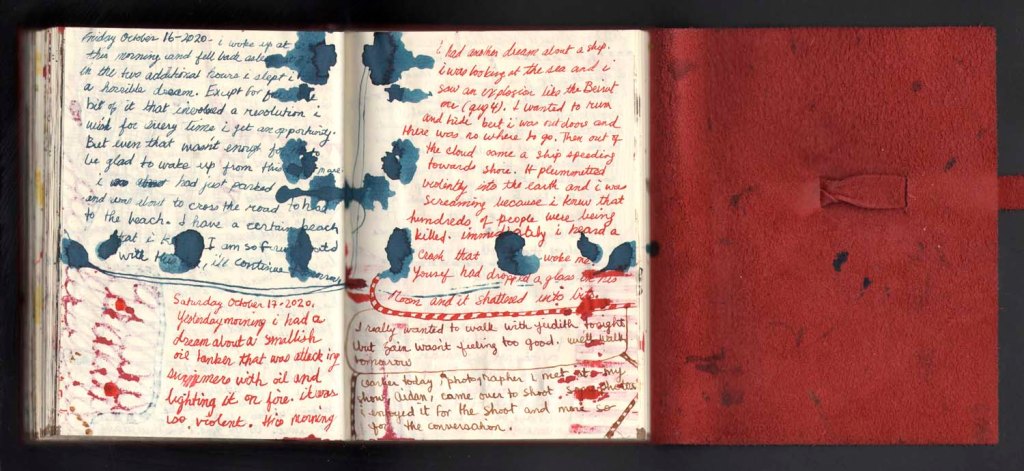 Friday October 16-2020. i woke up at
this morning and fell back asleep
in the two additional hours i slept i
a horrible dream. Exept for
bit of it that involved a revolution i
wish for every time i get an opportunity.
But even that wasn't enough
be glad to wake up from this
i had just parked
and was about to cross the road to
to the beach. I have a certain beach
that i I am so
with i'll continue
Saturday October 17-2020.
Yesterday morning i had a
dream about a smallish
oil tanker that was attacking
swimmers with oil and
lighting it on fire. it was
too violent. this morning
i had another dream about a ship.
i was looking at the sea and i
saw an explosion like the Beirut
one (aug 4). I wanted to run
and hide but i was outdoors and
there was no where to go. Then out of
the cloud came a ship speeding
towards shore. It plummetted
violently into the earth and i was
screaming because i knew that
hundreds of people were being
killed. immediately i heard a
crash that woke me
Yousef had dropped a glass in his
Room and it shattered into bits.
I really wanted to walk with Judith tonight
but Zain wasn't feeling too good. we'll walk
tomorrow
earlier today, photographer i met at my
show, Aidan, came over to shoot some photos
i enjoyed it for the shoot and more so
for the conversation.